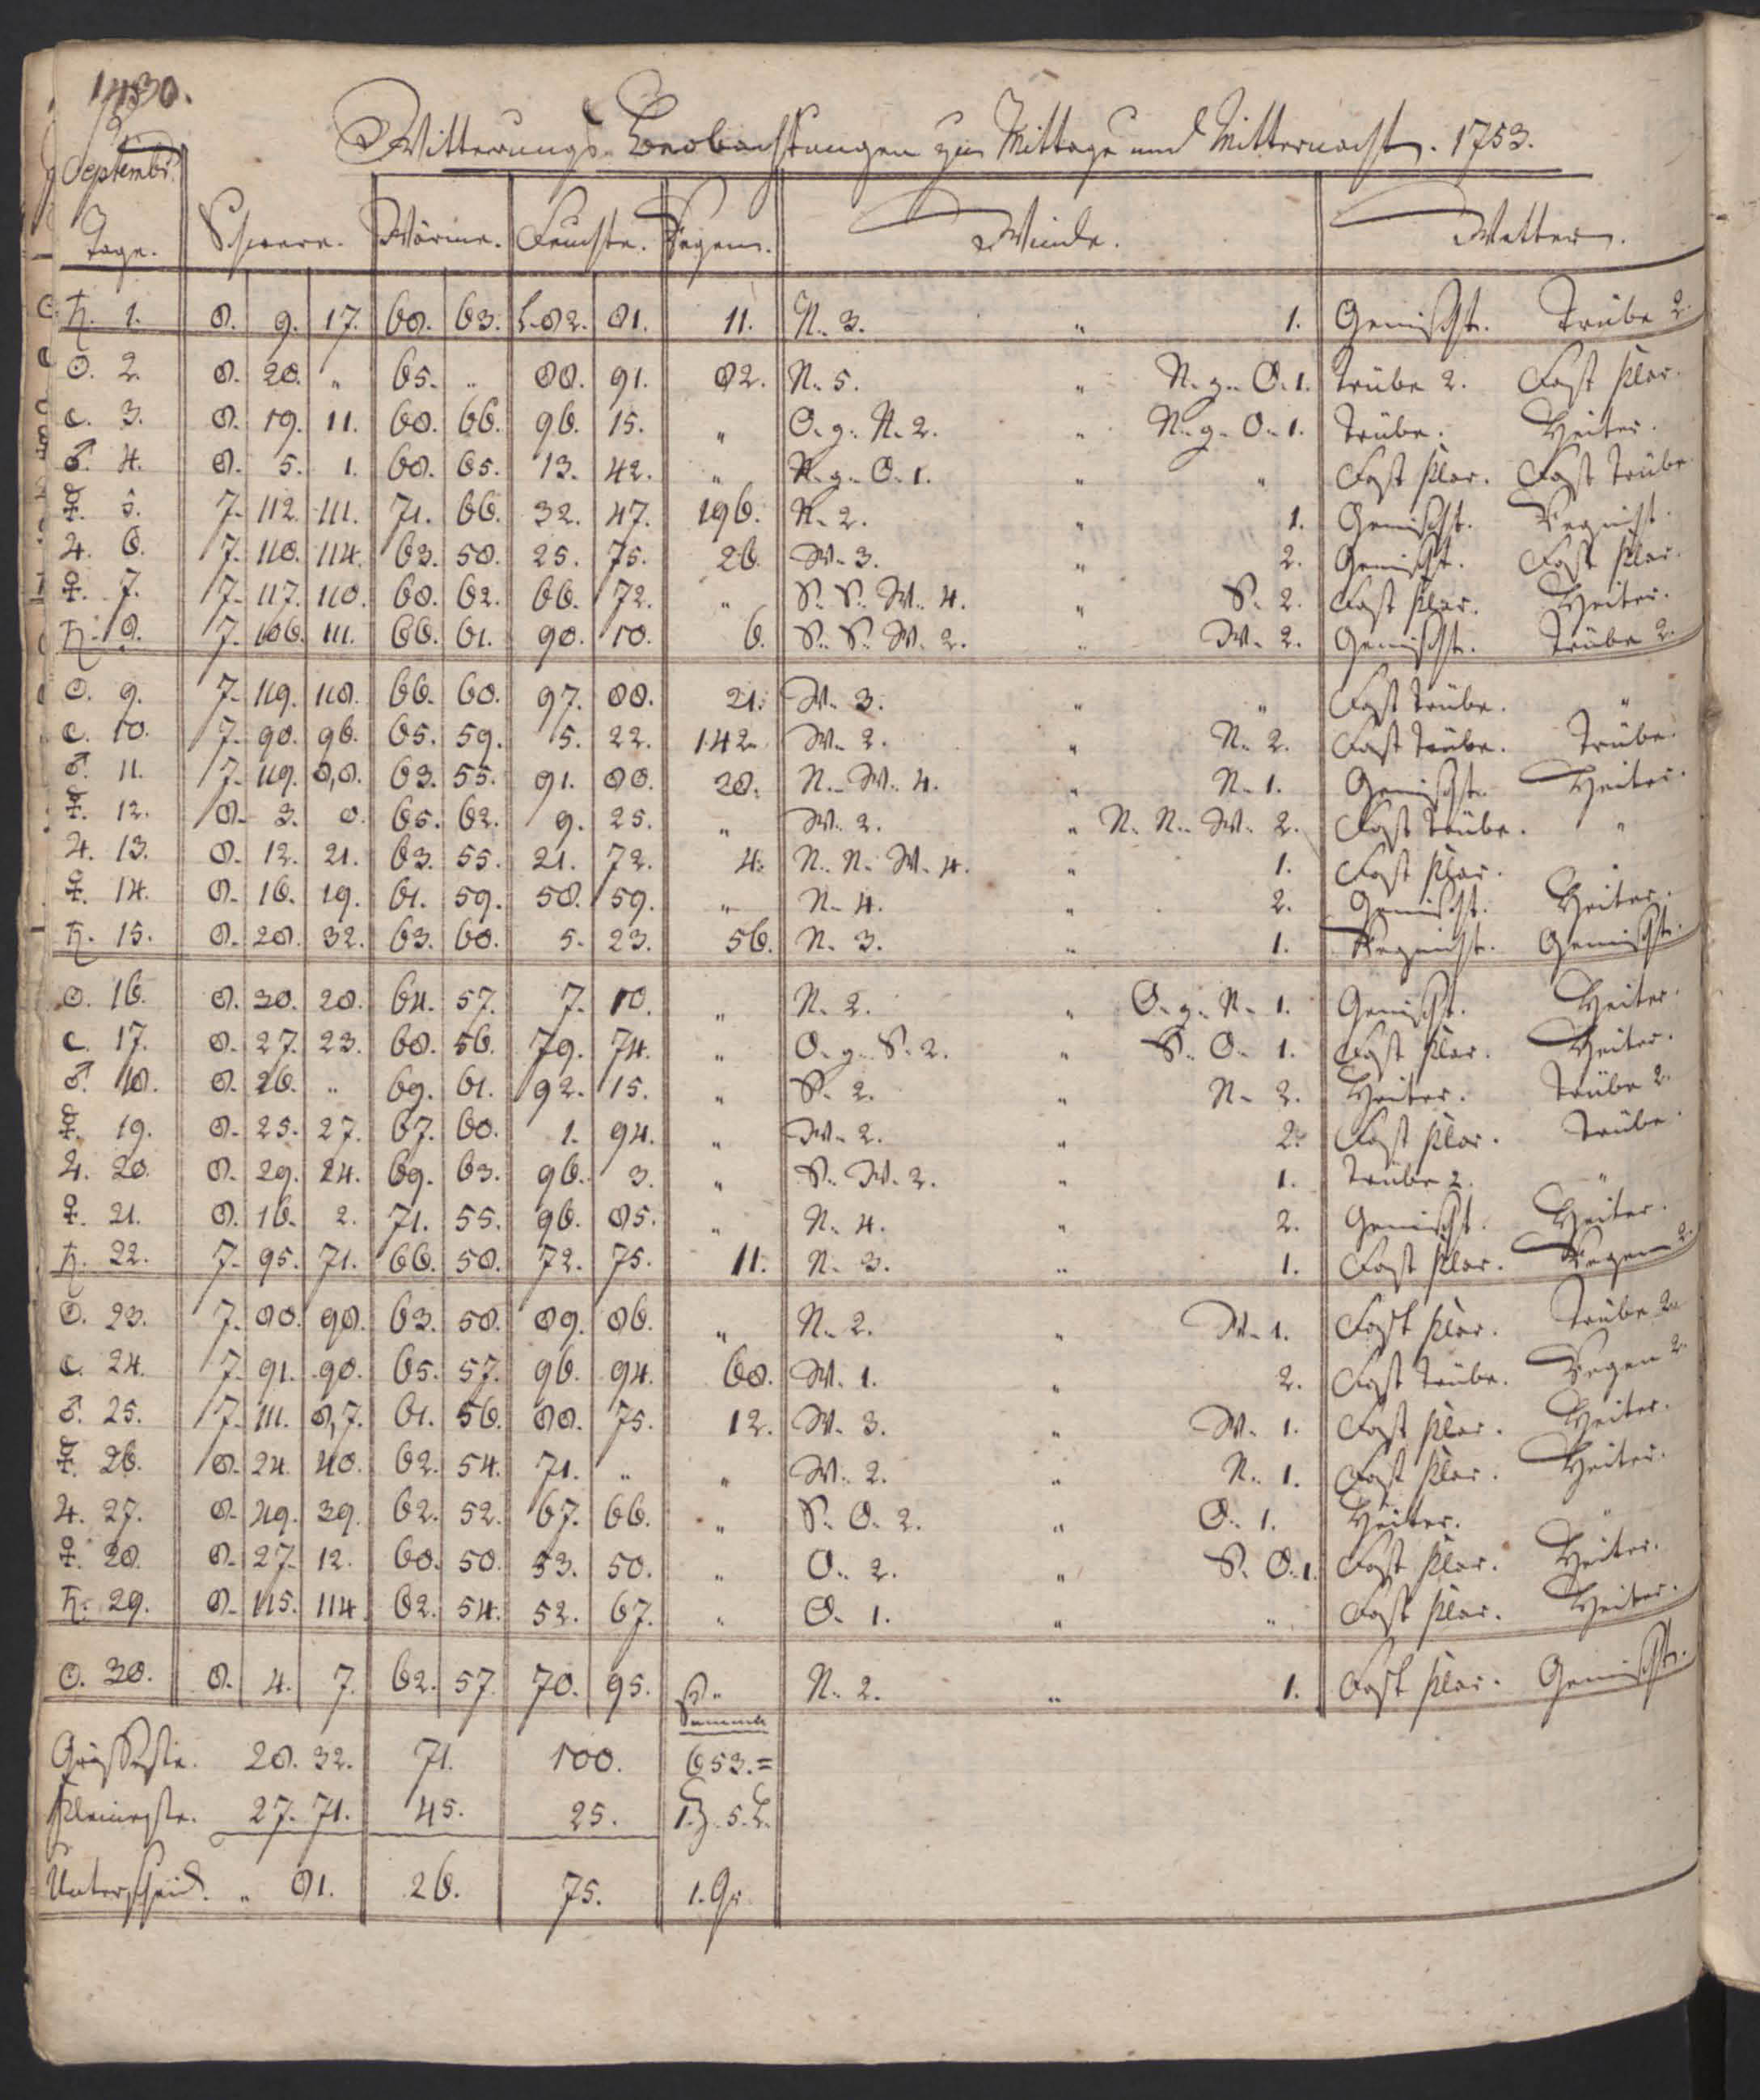 1430.
Witterungs-Beobachtungen zu Mittage und Mitternacht. 1753.
Septembr.
Tage. Schwere. Wärme. Feuchte. Regen. Winde. Wetter.
♄. 1. 8. 9. 17. 68. 63. L.82. 81. 11. N. 3. " 1. Gemischt. Trübe 2.
☉. 2. 8. 20. " 65. " 88. 91. 82. N. 5. " N. g. O. 1. Trübe 2. Fast klar.
☾. 3. 8. 19. 11. 68. 66. 96. 15. " O. g. N. 2. " N. g. O. 1. Trübe. Heiter.
♂. 4. 8. 5. 1. 68. 65. 13. 42. " N. g. O. 1. " " Fast klar. Fast trübe.
☿. 5. 7. 112. 111. 71. 66. 32. 47. 196. N. 2. " 1. Gemischt. Regnicht.
♃. 6. 7. 110. 114. 63. 58. 25. 75. 26. W. 3. " 2. Gemischt. Fast klar.
♀. 7. 7. 117. 110. 68. 62. 66. 72. " S. S. W. 4. " S. 2. Fast klar. Heiter.
♄. 8. 7. 106. 111. 66. 61. 90. 10. 6. S. S. W. 2. " W. 2. Gemischt. Trübe 2.
☉. 9. 7. 119. 118. 66. 60. 97. 88. 21. W. 3. " " Fast trübe. "
☾. 10. 7. 90. 96. 65. 59. 5. 22. 142. W. 2. " N. 2. Fast trübe. Trübe.
♂. 11. 7. 119. 8,8. 63. 55. 91. 88. 28. N. W. 4. " N. 1. Gemischt. Heiter.
☿. 12. 8. 3. 8. 65. 62. 9. 25. " W. 2. " N. N. W. 2. Fast trübe. "
♃. 13. 8. 12. 21. 63. 55. 21. 72. 4. N. N. W. 4. " 1. Fast klar. "
♀. 14. 8. 16. 19. 61. 59. 58. 59. " N. 4. " 2. Gemischt. Heiter.
♄. 15. 8. 28. 32. 63. 60. 5. 23. 56. N. 3. " 1. Regnicht. Gemischt.
☉. 16. 8. 30. 28. 64. 57. 7. 10. " N. 2. " O. g. N. 1. Gemischt. Heiter.
☾. 17. 8. 27. 23. 68. 56. 79. 74. " O. g. S. 2. " S. O. 1. Fast klar. Heiter.
♂. 18. 8. 26. " 69. 61. 92. 15. " S. 2. " N. 2. Heiter. Trübe 2.
☿. 19. 8. 25. 27. 67. 60. 1. 94. " W. 2. " 2. Fast klar. Trübe.
♃. 20. 8. 29. 24. 69. 63. 96. 3. " S. W. 2. " 1. Trübe 2. "
♀. 21. 8. 16. 2. 71. 55. 96. 85. " N. 4. " 2. Gemischt. Heiter.
♄. 22. 7. 95. 71. 66. 50. 72. 75. 11. N. 3. " 1. Fast klar. Regen 2.
☉. 23. 7. 80. 98. 63. 58. 89. 86. " N. 2. " W. 1. Fast klar. Trübe 2.
☾. 24. 7. 91. 90. 65. 57. 96. 94. 60. W. 1. " 2. Fast trübe. Regen 2.
♂. 25. 7. 111. 8,7. 61. 56. 88. 75. 12. W. 3. " W. 1. Fast klar. Heiter.
☿. 26. 8. 24. 40. 62. 54. 71. " " W. 2. " N. 1. Fast klar. Heiter.
♃. 27. 8. 49. 39. 62. 52. 67. 66. " S. O. 2. " O. 1. Heiter. "
♀. 28. 8. 27. 12. 60. 50. 53. 50. " O. 2. " S. O. 1. Fast klar. Heiter.
♄. 29. 8. 115. 114. 62. 54. 52. 67. " O. 1. " " Fast klar. Heiter.
☉. 30. 8. 4. 7. 62. 57. 70. 95. " N. 2. " 1. Fast klar. Gemischt.
Summe
Grösseste. 28. 32. 71. 100. 653.=
Kleineste. 27. 71. 45. 25. 1.Z. 5.L.
Unterscheid. " 81. 26. 75. 1. Gr.